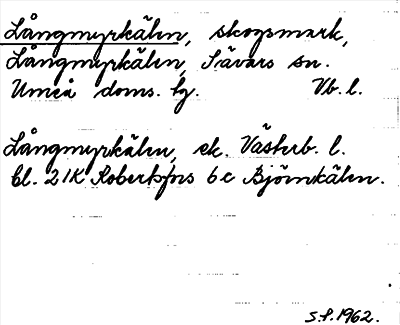 Långmyrkälen, skogsmark,
Långmyrkälen, Sävars sn.
Umeå doms. tg. Vb. l.
Långmyrkälen, ek. Västerb. l.
bl. 21K Robertsfors 6 c Björnkälen.
S.P. 1962.